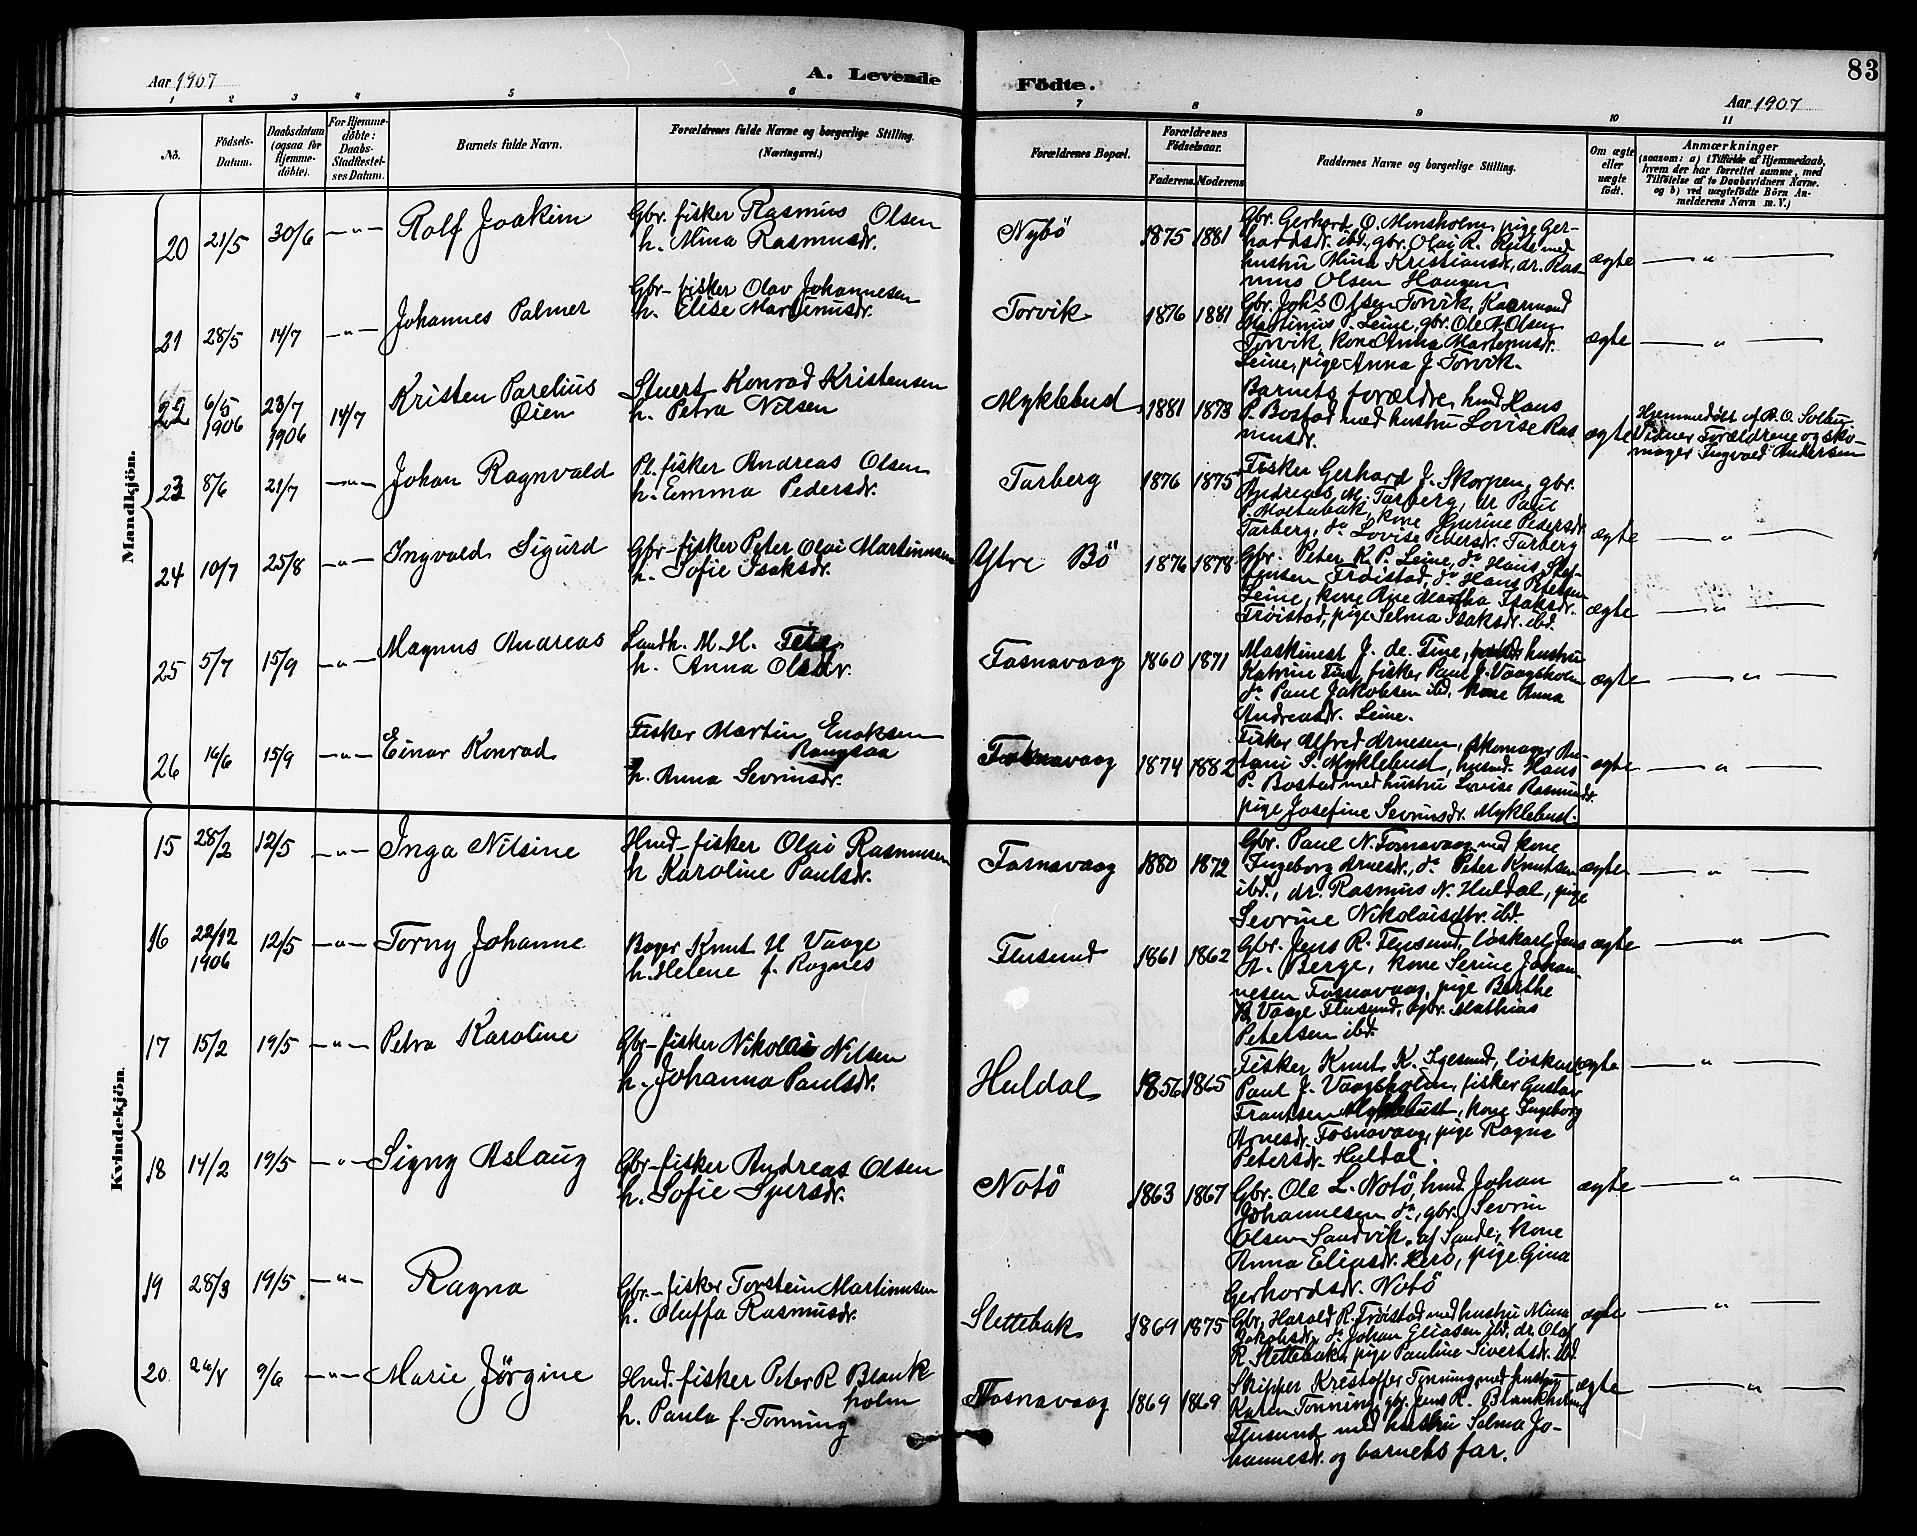 Aar 1907
A. Levende
Födte.
83
Aar 1907
1 2 3 4 5 6 7 8 9 10 11
No.
Födsels-
Datum.
Daabsdatum
(ogsaa for
Hjemme-
döbte).
For Hjemme-
döbte:
Daabs-
Stadfæstel-
ses Datum.
Barnets fulde Navn.
Forældrenes fulde Navne og borgerlige Stilling.
(Næringsvei.)
Forældrenes Bopæl.
Forældrenes
Födselsaar.
Faderens. Moderens.
Faddernes Navne og borgerlige Stilling.
Om ægte
eller
uægte
født.
Anmærkninger
(saasom: a) i Tilfælde af Hjemmedaab,
hvem der har forrettet samme, med
Tilföielse af to Daabsvidners Navne.
og b) ved uægtefödte Börn An-
melderens Navn m. V.)
Mandkjön.
20 21/5 30/6 — " — Rolf Joakim
Gbr. fisker Rasmus Olsen
h. Mina Rasmusdr.
Nybö 1875 1881
Gbr. Gerhard O. Monsholm, pige Ger-
hardsdr. ibd., gbr. Olai R. Reite med
hustru Mina Kristiansdr., dr. Ras-
mus Olsen Haugen
ægte — " —
21 28/5 14/7 — " — Johannes Palmer
Gbr-fisker Olav Johannesen
h. Elise Martinusdr.
Torvik 1876 1881
Gbr. Johs Olsen Torvik, Kaarmand
Martinus P. Leine, gbr. Ole A. Olsen
Torvik, kone Anna Martinusdr.
Leine, pige Anna J. Torvik.
ægte — " —
22 6/5 1906 23/7 1906 14/7 Kristen Parelius
Øien
Stuert Konrad Kristensen
h. Petra Nilsen
Myklebust 1881 1873
Barnets forældre, hmd Hans
P. Bostad med hustru Lovise Ras
musdr.
ægte
Hjemmedöbt af R. O. Solbu
Vidner Forældrene og sko-
mager Ingvald Andersen
23 8/6 21/7 — " — Johan Ragnvald
Pl. fisker Andreas Olsen
h. Emma Pedersdr.
Tarberg 1876 1875
Fisker Gerhard J. Skorpen, gbr.
Andreas M. Tarberg, dr Paul
P. Moltubak, kone Gurine Pedersdr
Tarberg, do Lovise Pedersdr. Tarberg
ægte — " —
24 10/7 25/8 — " — Ingvald Sigurd
Gbr-fisker Peter Olai Martinusen
h. Sofie Isaksdr.
Ytre Bö 1876 1878
Gbr. Peter K. P. Leine, do Hans Stef-
fensen Fröistad, do Hans Petersen
Leine, kone Ane Martha Isaksdr.
Fröistad, pige Selma Isaksdr. ibd.
ægte — " —
25 5/7 15/9 — " — Magnus Andreas
Landh. M. H.
h. Anna Olsdr.
Fosnavaag 1860 1871
Maskinest J. de. Fine, hustru
Katrine Fine, fisker Paul J. Vaagsholm
do Paul Jakobsen ibd. kone Anna
Andreasdr. Leine.
ægte — " —
26 16/6 15/9 — " — Einar Konrad
Fisker Martin Enoksen
Rangsaa
h. Anna Sevrinsdr.
Fosnavaag 1874 1882
Fisker Alfred Arnesen, skomager An-
tani S. Myklebust, husmd. Hans
P. Bostad med hustru Lovise Rasmusdr.
pige Josefine Sevrinsdr. Myklebust.
ægte — " —
Kvindekjön.
15 28/2 12/5 — " — Inga Nilsine
Hmd-fisker Olai Rasmusen
h Karoline Paulsdr.
Fosnavaag 1880 1872
Gbr. Paul N. Fosnavaag med kone
Ingeborg Arnesdr., do Peter Knutsen
ibd., dr. Rasmus N. Huldal, pige
Sevrine Nikolaisdtr. ibd.
ægte — " —
16 22/12 1906 12/5 — " — Torny Johanne
Bager Knut H Vaage
h. Helene f. Rognes
Flusund 1861 1862
Gbr. Jens R. Flusund, löskarl Jens
A. Berge, kone Serine Johan-
nesen Fosnavaag, pige Berthe
Vaage Flusund, gbr. Mathias
Petersen ibd.
ægte — " —
17 15/2 19/5 — " — Petra Karoline
Gbr-fisker Nikolai Nilsen
h. Johanna Paulsdr.
Huldal 1856 1865
Fisker Knut K. Igesund, löskarl
Paul J. Vaagsholm, fisker Gustav
Frantsen Myklebust, kone Ingeborg
Arnesdr. Fosnavaag, pige Ragna
Petersdr. Huldal.
ægte — " —
18 14/2 19/5 — " — Signy Aslaug
Gbr-fisker Andreas Olsen
h. Sofie Sjursdr.
Notö 1863 1867
Gbr. Ole L. Notö, hmd. Johan
Johannesen do, gbr. Sevrin
Olsen Sandvik af Sande, kone
Anna Eliasdr. Herö, pige Gina
Gerhardsdr. Notö
ægte — " —
19 28/3 19/5 — " — Ragna
Gbr.-fisker Torstein Martinusen
h. Oluffa Rasmusdr.
Slettebak 1869 1875
Gbr, Harald R. Fröistad med hustru Mina
Jakobsdr, do Johan Eliasen ibd. dr. Olaf
R. Slettebak, pige Pauline Sivertsdr. ibd.
ægte — " —
20 26/4 9/6 — " — Marie Jörgine
Hmd-fisker Peter R Blank
holm
h. Paula f. Tonning
Fosnavaag 1869 1869
Skipper Kristoffer Tonning, med hustru
Karen Tonning, gbr. Jens R. Blankholm
Flusund med hustru Selma Jo-
hannesdr. og barnets far.
ægte — " —